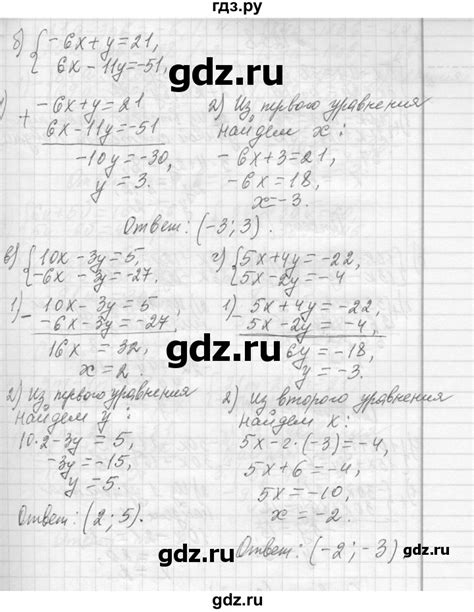 гдз.ру
б) { -6x + y = 21,
6x - 11y = -51,
1) + -6x + y = 21
6x - 11y = -51
-10y = -30,
y = 3.
2) Из первого уравнения
найдем x:
-6x + 3 = 21,
-6x = 18,
x = -3.
Ответ: (-3; 3).
в) { 10x - 3y = 5,
-6x - 3y = -27.
1) - 10x - 3y = 5
-6x - 3y = -27
16x = 32,
x = 2.
2) Из первого уравнения
найдем y:
10·2 - 3y = 5,
-3y = -15,
y = 5.
Ответ: (2; 5).
г) { 5x + 4y = -22,
5x - 2y = -4
1) - 5x + 4y = -22,
5x - 2y = -4,
6y = -18,
y = -3.
2) Из второго уравнения
найдем x:
5x - 2·(-3) = -4,
5x + 6 = -4,
5x = -10,
x = -2.
Ответ: (-2; -3)
gdz.ru
gdz.ru
gdz.ru
gdz.ru
gdz.ru
gdz.ru
gdz.ru
gdz.ru